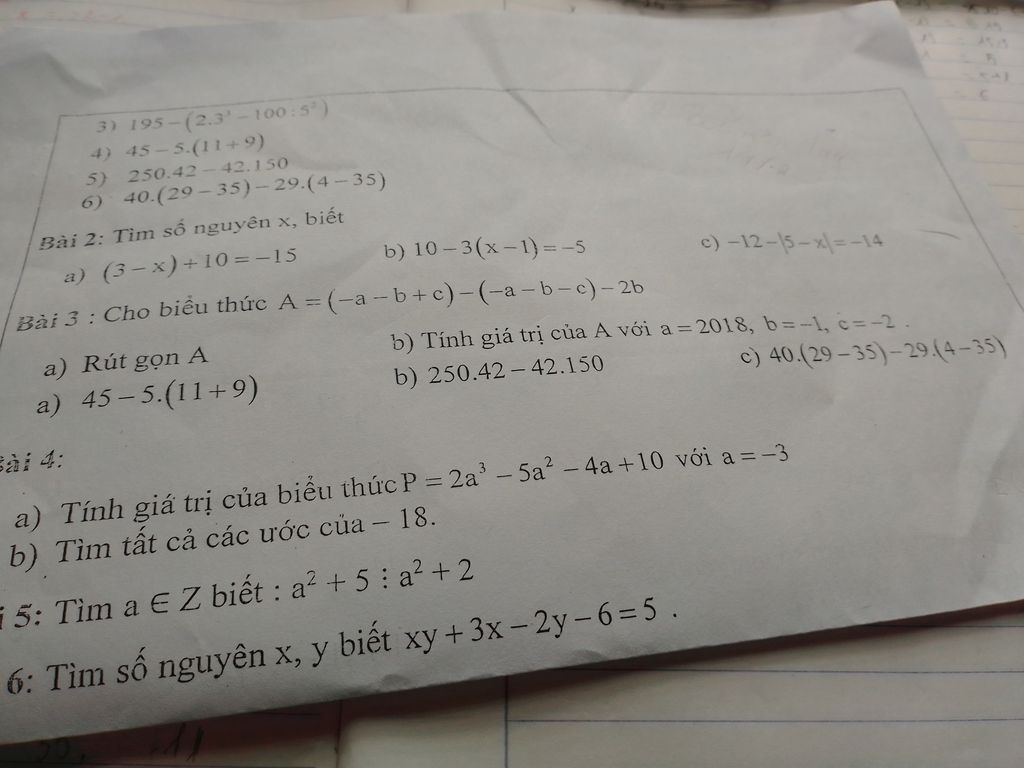 3) 195 – (2.3³ – 100 : 5²)
4) 45 – 5.(11 + 9)
5) 250.42 – 42.150
6) 40.(29 – 35) – 29.(4 – 35)
Bài 2: Tìm số nguyên x, biết
a) (3 – x) + 10 = –15 b) 10 – 3(x – 1) = –5 c) –12 – |5 – x| = –14
Bài 3 : Cho biểu thức A = (–a – b + c) – (–a – b – c) – 2b
a) Rút gọn A b) Tính giá trị của A với a = 2018, b = –1, c = –2 .
a) 45 – 5.(11 + 9) b) 250.42 – 42.150 c) 40.(29 – 35) – 29.(4 – 35)
Bài 4:
a) Tính giá trị của biểu thức P = 2a³ – 5a² – 4a + 10 với a = –3
b) Tìm tất cả các ước của – 18.
i 5: Tìm a ∈ Z biết : a² + 5 ⋮ a² + 2
6: Tìm số nguyên x, y biết xy + 3x – 2y – 6 = 5 .